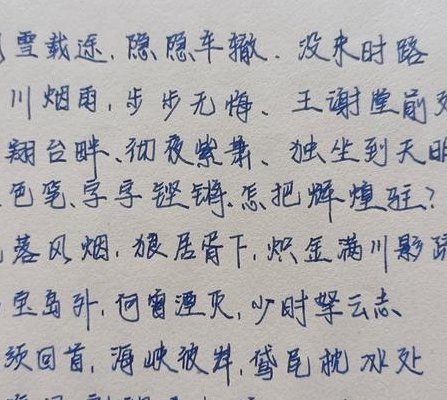 雪载途,隐隐车辙、没来时路
川烟雨,步步无悔、王谢堂前
翔台畔、彻夜萦萧、独坐到天明
色笔、字字铿锵,怎把辉煌驻?
落风烟,狼居胥下,炽金满川影
宝岛外,何曾湮灭,少时拏云志
须回首,海峡彼岸,鸢尾枕冰处